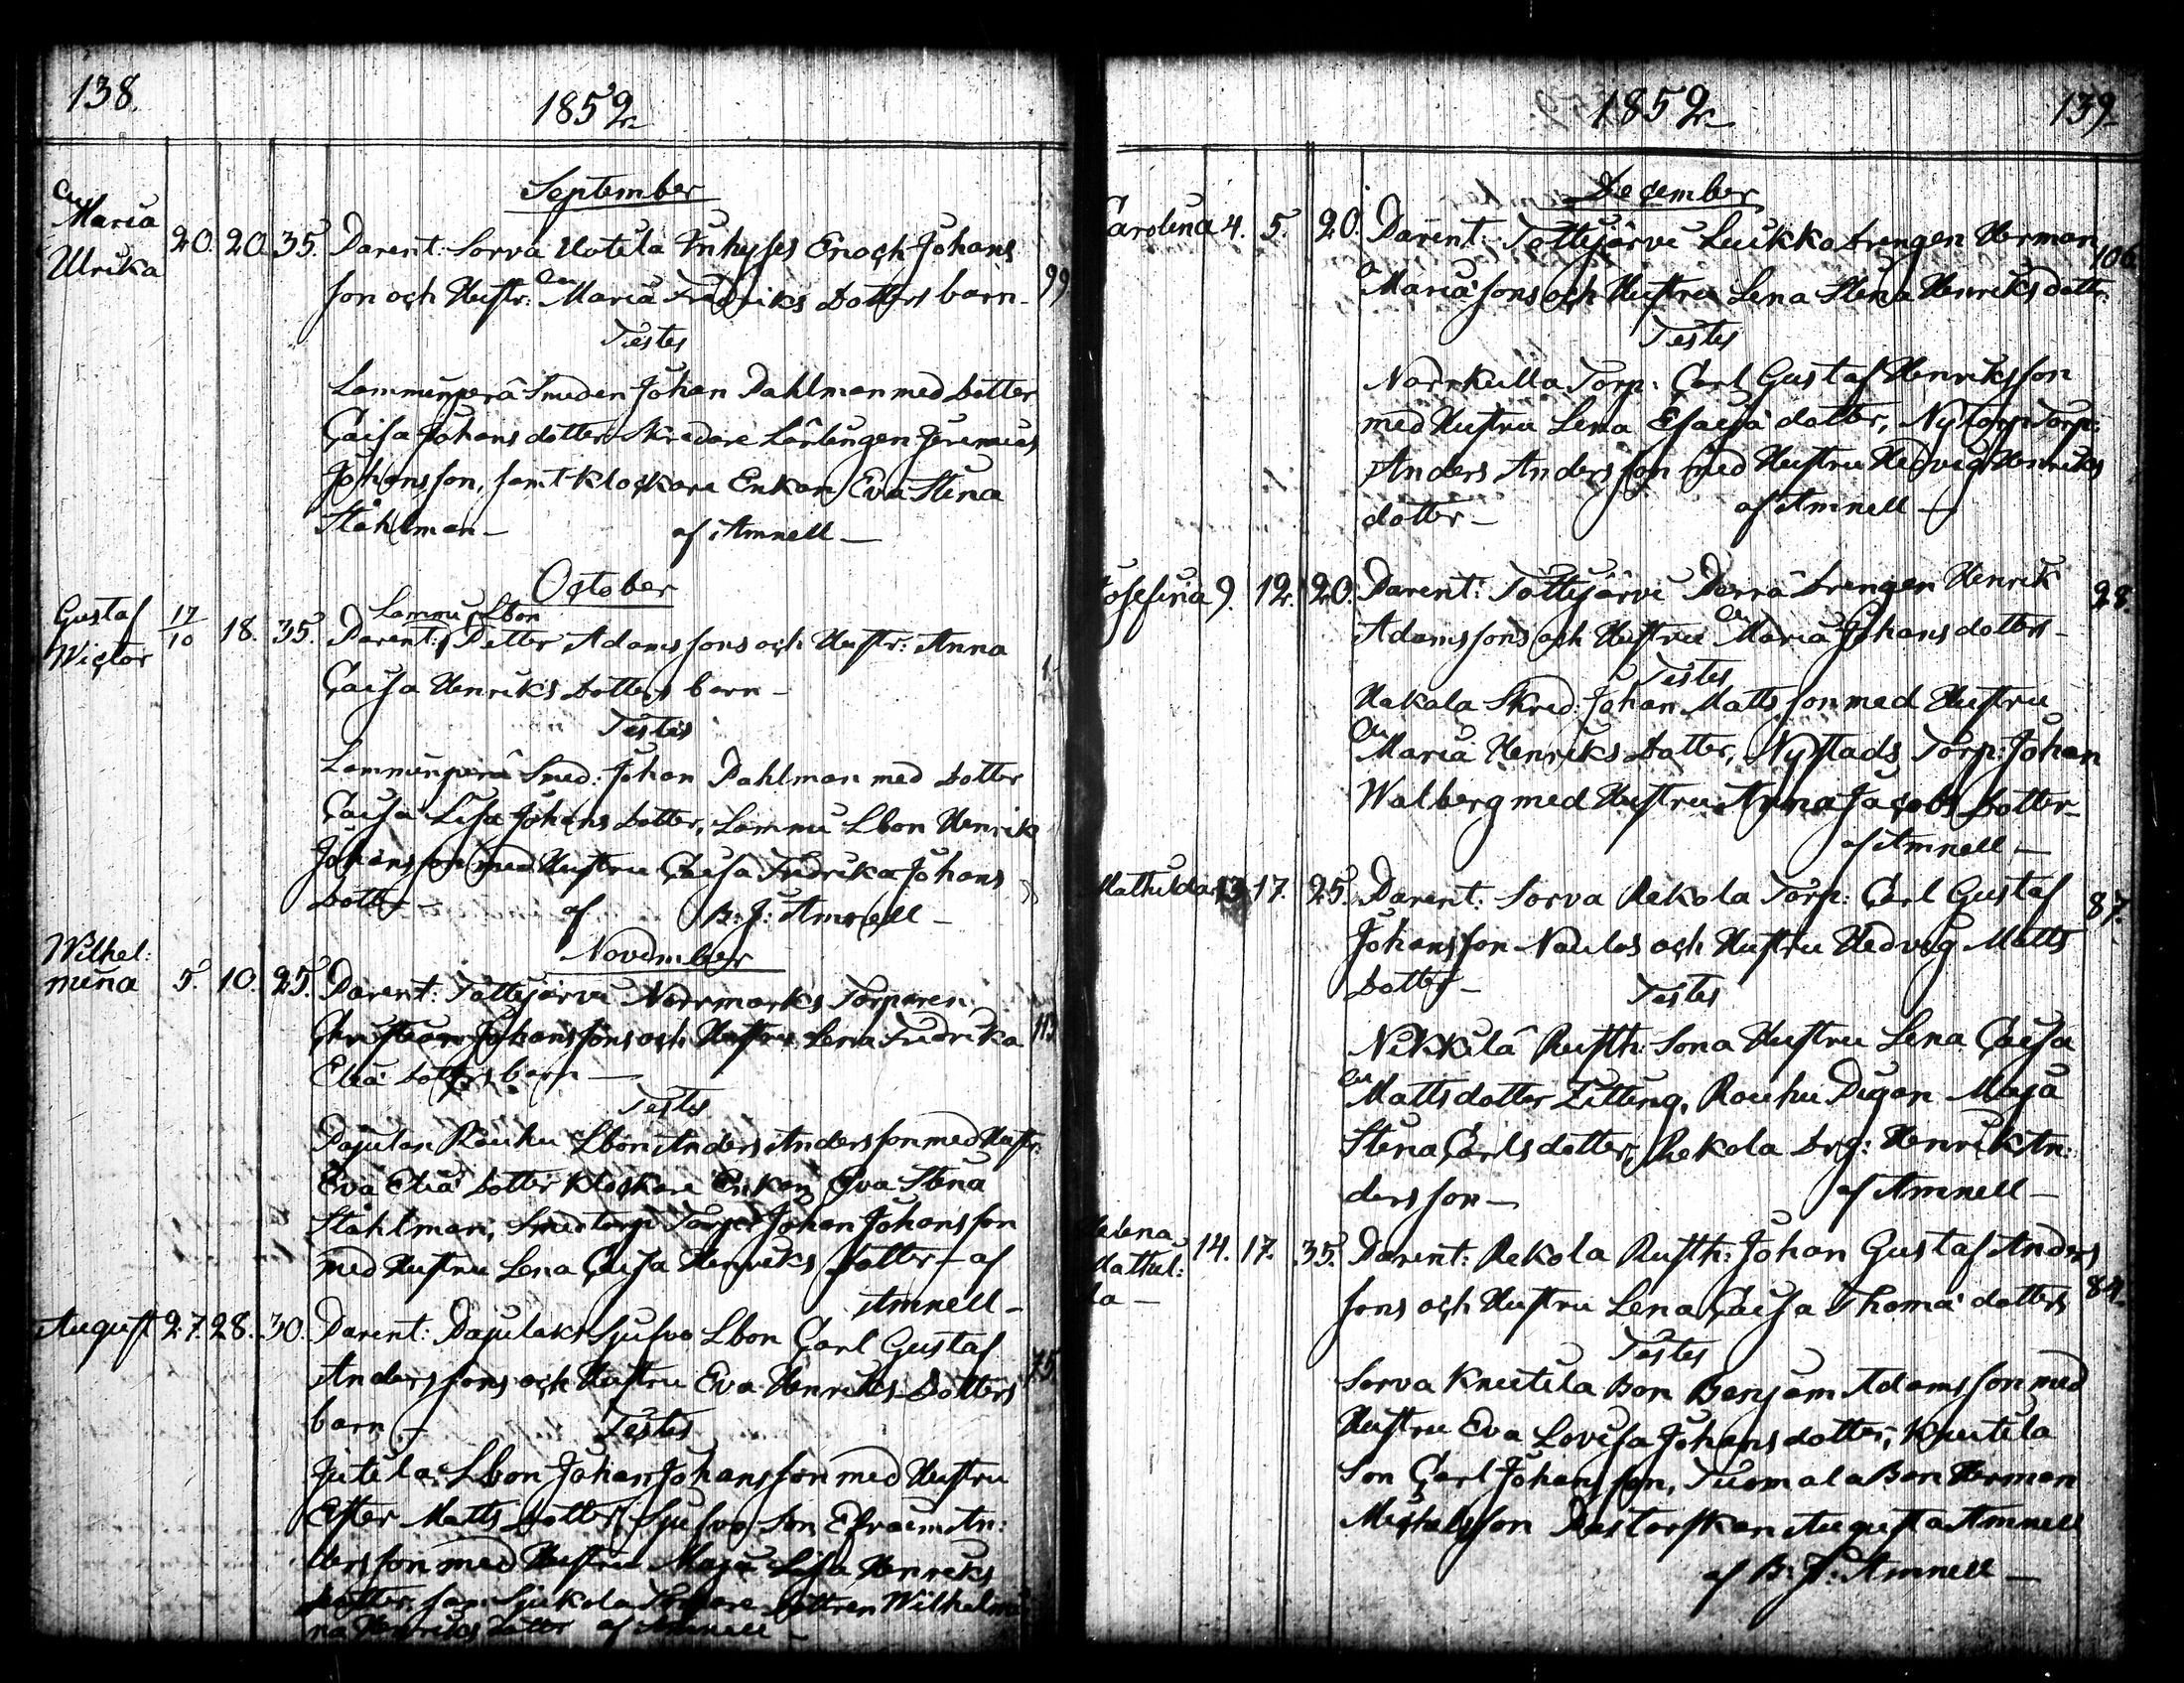 138.
1852.
September
Maria
Ulrika
20. 20. 35. Parent: Sorva Uotila Inhyses Enoch Johans
son och Hustr: Maria Fredriks Dotters barn - 99
Testes
Lammenperä Smeden Johan Dahlman med dotter
Caisa Johans dotter Skredare Lärlingen Jeremias
Johansson, samt Klockare Enkan Eva Stina
Ståhlman - af Amnell -
October
Lammi Lbon
Gustaf
Victor
17/10 18. 35. Parent: Petter Adamssons och Hustr: Anna
Caisa Henriks Dotters barn -
Testes
Lammenperä Smed: Johan Dahlman med Dotter
Caisa Lisa Johans Dotter, Lammi Lbon Henrik
Johansson med Hustru Caisa Fredrika Johans
Dotter af B: J: Amnell -
November
Wilhel:
mina 5. 10. 25. Parent: Tottijärvi Norrmarks Torparen
Christian Johanssons och Hustru Lena Fredrika 113
Eliä Dotters barn -
Testes
Pajulan Rouhu Lbon Anders Andersson med Hustr:
Eva Eliä Dotter Klockare Enkan Eva Stina
Ståhlman, Smedtorp Torper Johan Johansson
med Hustru Lena Caisa Henriks Dotter - af
Amnell -
August 27. 28. 30. Parent: Lbon Carl Gustaf
Anderssons och Hustru Eva Henriks Dotters 75.
barn -
Testes
Jutila Lbon Johan Johansson med Hustru
Ester Matts Dotter, Son Efraim An:
dersson med Hustru Maja Lisa Henriks
Dotter, Dottren Wilhelmi
na Henriks Dotter af Amnell -
1852.
139.
December
Carolina 4. 5. 20. Parent: Tottijärvi Luikko Drengen Herman
Mariäsons och Hustru Lena Stina Henriks dotter: 106.
Testes
Norrkulla Torp: Carl Gustaf Henriksson
med Hustru Lena Esaiä dotter, Nytorp Torp:
Anders Andersson med Hustru Hedvig Henriks
dotter - af Amnell -
Josefina 9. 12. 20. Parent: Tottijärvi Perrä Drengen Henrik 28.
Adamssons och Hustru Maria Johans dotters -
Testes
Hakala Skred: Johan Mattsson med Hustru
Maria Henriks Dotter, Nystads Torp: Johan
Walberg med Hustru Anna Jacobs Dotter -
af Amnell -
Mathilda 13. 17. 25. Parent: Sorva Rekola Torp: Carl Gustaf 87.
Johansson Naulas och Hustru Hedvig Matts
Dotter - Testes
Nikkilä Rusth: Sona Hustru Lena Caisa
Mattsdotter Zitting, Rouhu Pigan Maja
Stina Carlsdotter, Rekola Drg: Henrik An:
dersson - af Amnell -
Helena
Mathil:
da -
14. 17. 35. Parent: Rekola Rusth: Johan Gustaf Anders
sons och Hustru Lena Caisa Thomä dotters 84.
Testes
Sorva Knutila Bon Benjam Adamsson med
Hustru Eva Lovisa Johans dotter, Knutila
Son Carl Johansson, Tuomala Bon Herman
Michelsson Pastorskan Augusta Amnell
af B: J: Amnell -